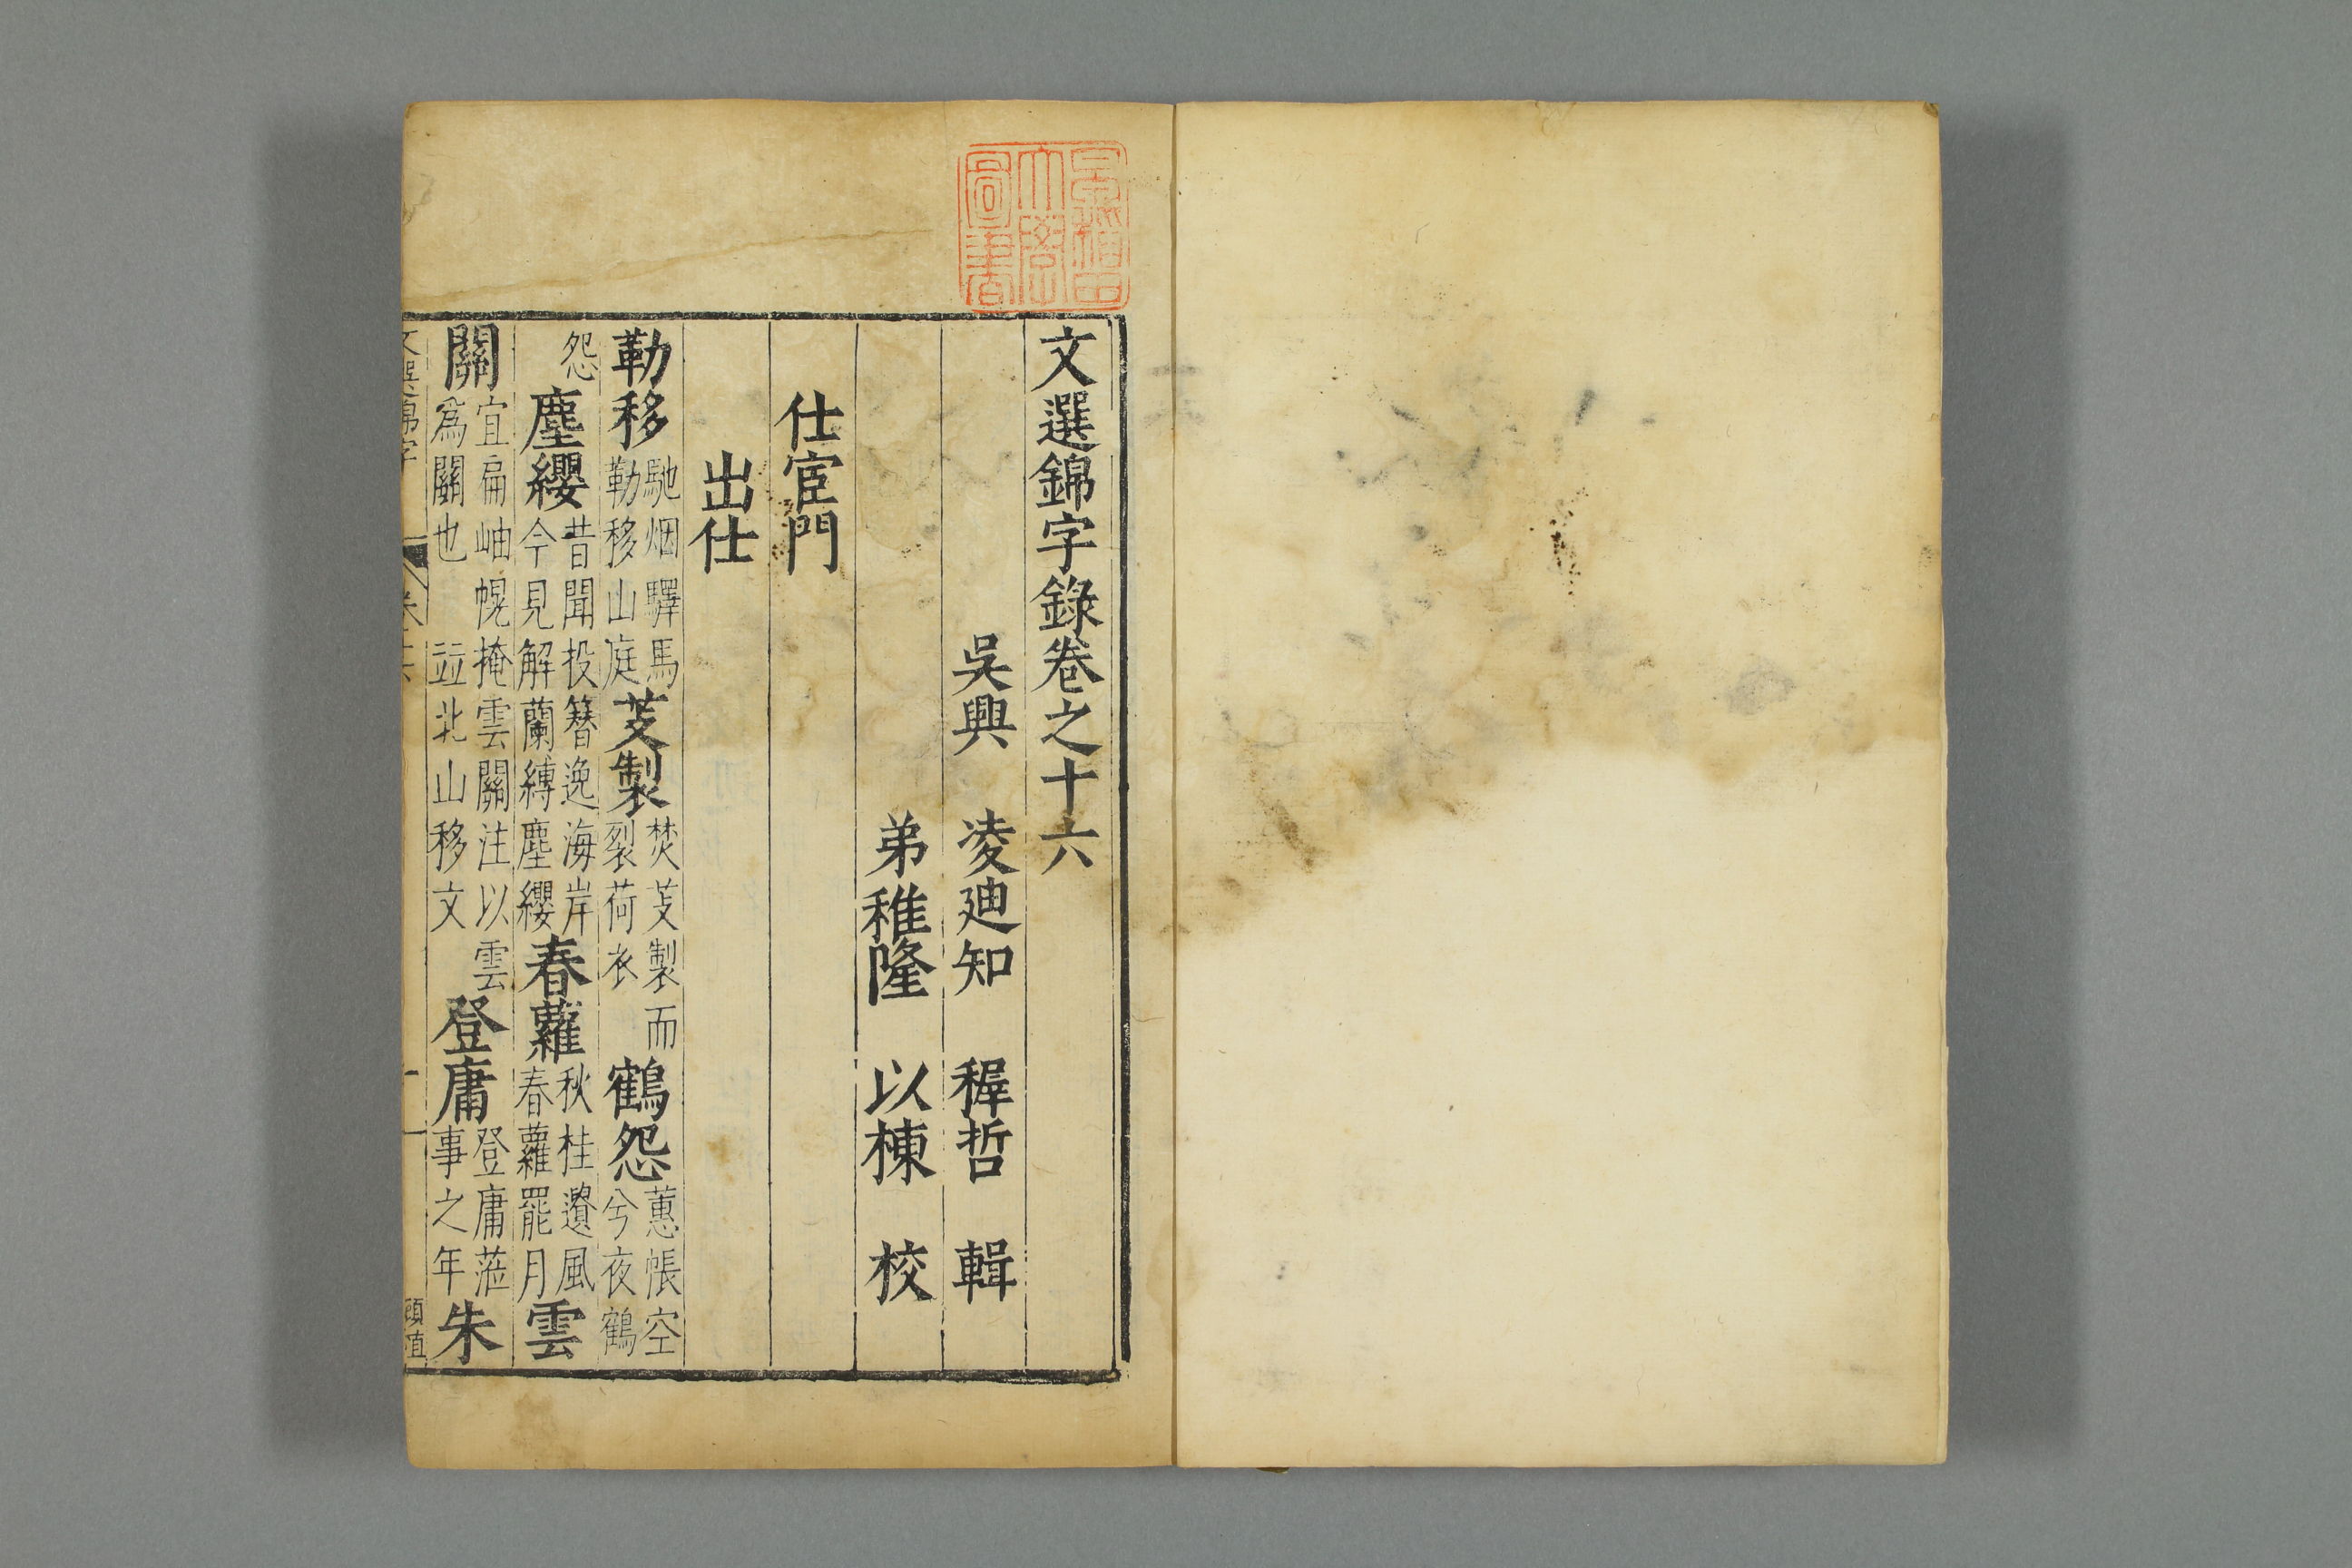 文選錦字錄卷之十六
吳興 凌廸知 穉哲 輯
弟稚隆 以棟 校
仕宦門
出仕
勒移馳烟驛馬勒移山庭芰製焚芰製而裂荷衣鶴怨蕙帳空兮夜鶴
怨塵纓昔聞投簪逸海岸今見解蘭縛塵纓春蘿秋桂遺風春蘿罷月雲
關宜扁岫幌掩雲關注以雲爲關也 竝北山移文登庸登庸蒞事之年朱
文選錦字 卷十六 一
早稻田大學圖書